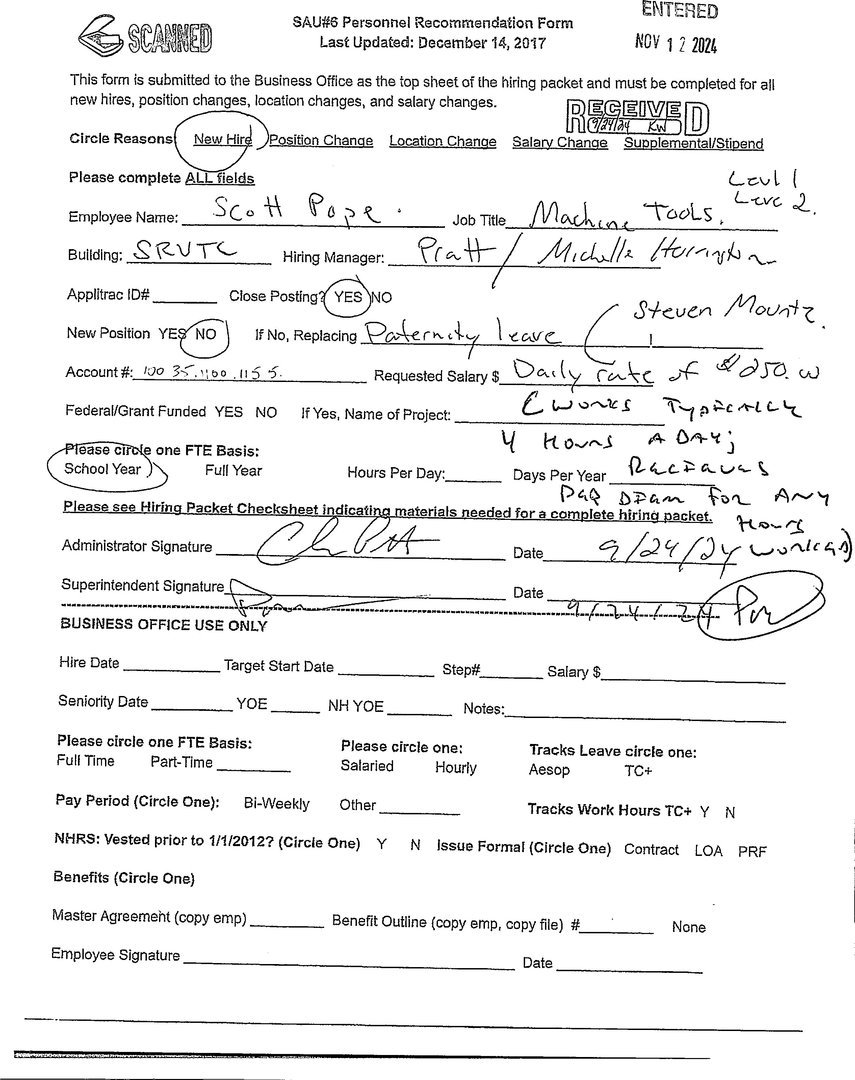 SCANNED
SAU#6 Personnel Recommendation Form
Last Updated: December 14, 2017
ENTERED
NOV 12 2024
This form is submitted to the Business Office as the top sheet of the hiring packet and must be completed for all
new hires, position changes, location changes, and salary changes.
RECEIVED
9/24/24 KW
Circle Reasons: New Hire Position Change Location Change Salary Change Supplemental/Stipend
Please complete ALL fields
Level 1
Level 2.
Employee Name: Scott Pope. Job Title Machine Tools.
Building: SRVTC Hiring Manager: Pratt / Michelle Harrington
Applitrac ID# Close Posting? YES NO
Steven Mountz.
New Position YES NO If No, Replacing Paternity leave
Account #: 100 35.1100.1155. Requested Salary $ Daily rate of $250.00
Federal/Grant Funded YES NO If Yes, Name of Project: (Works Typically
4 Hours A DAY;
Please circle one FTE Basis:
School Year Full Year Hours Per Day: Days Per Year Receives
Per Diem for Any
Please see Hiring Packet Checksheet indicating materials needed for a complete hiring packet.
Hours
Worked)
Administrator Signature Date 9/24/24
Superintendent Signature Date 9/24/24
BUSINESS OFFICE USE ONLY
Hire Date Target Start Date Step# Salary $
Seniority Date YOE NH YOE Notes:
Please circle one FTE Basis: Please circle one: Tracks Leave circle one:
Full Time Part-Time Salaried Hourly Aesop TC+
Pay Period (Circle One): Bi-Weekly Other Tracks Work Hours TC+ Y N
NHRS: Vested prior to 1/1/2012? (Circle One) Y N Issue Formal (Circle One) Contract LOA PRF
Benefits (Circle One)
Master Agreement (copy emp) Benefit Outline (copy emp, copy file) # None
Employee Signature Date